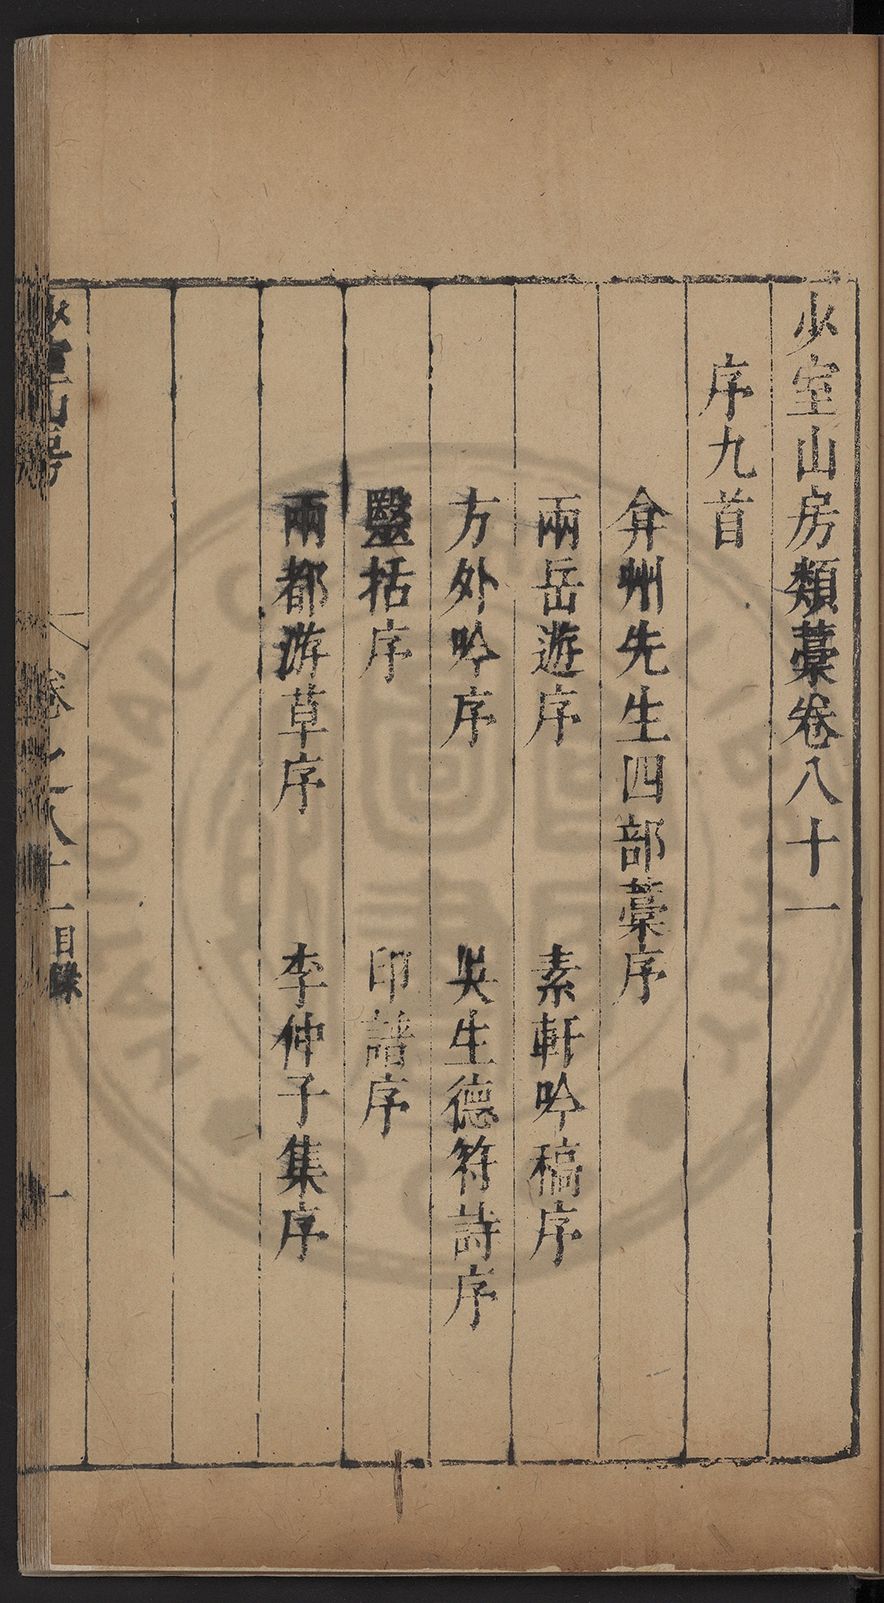 少室山房類藁卷八十一
序九首
弇州先生四部藁序
兩岳遊序 素軒吟稿序
方外吟序 吳生德符詩序
醫括序 印譜序
兩都游草序 李仲子集序
少室山房 卷之八十一目錄 一